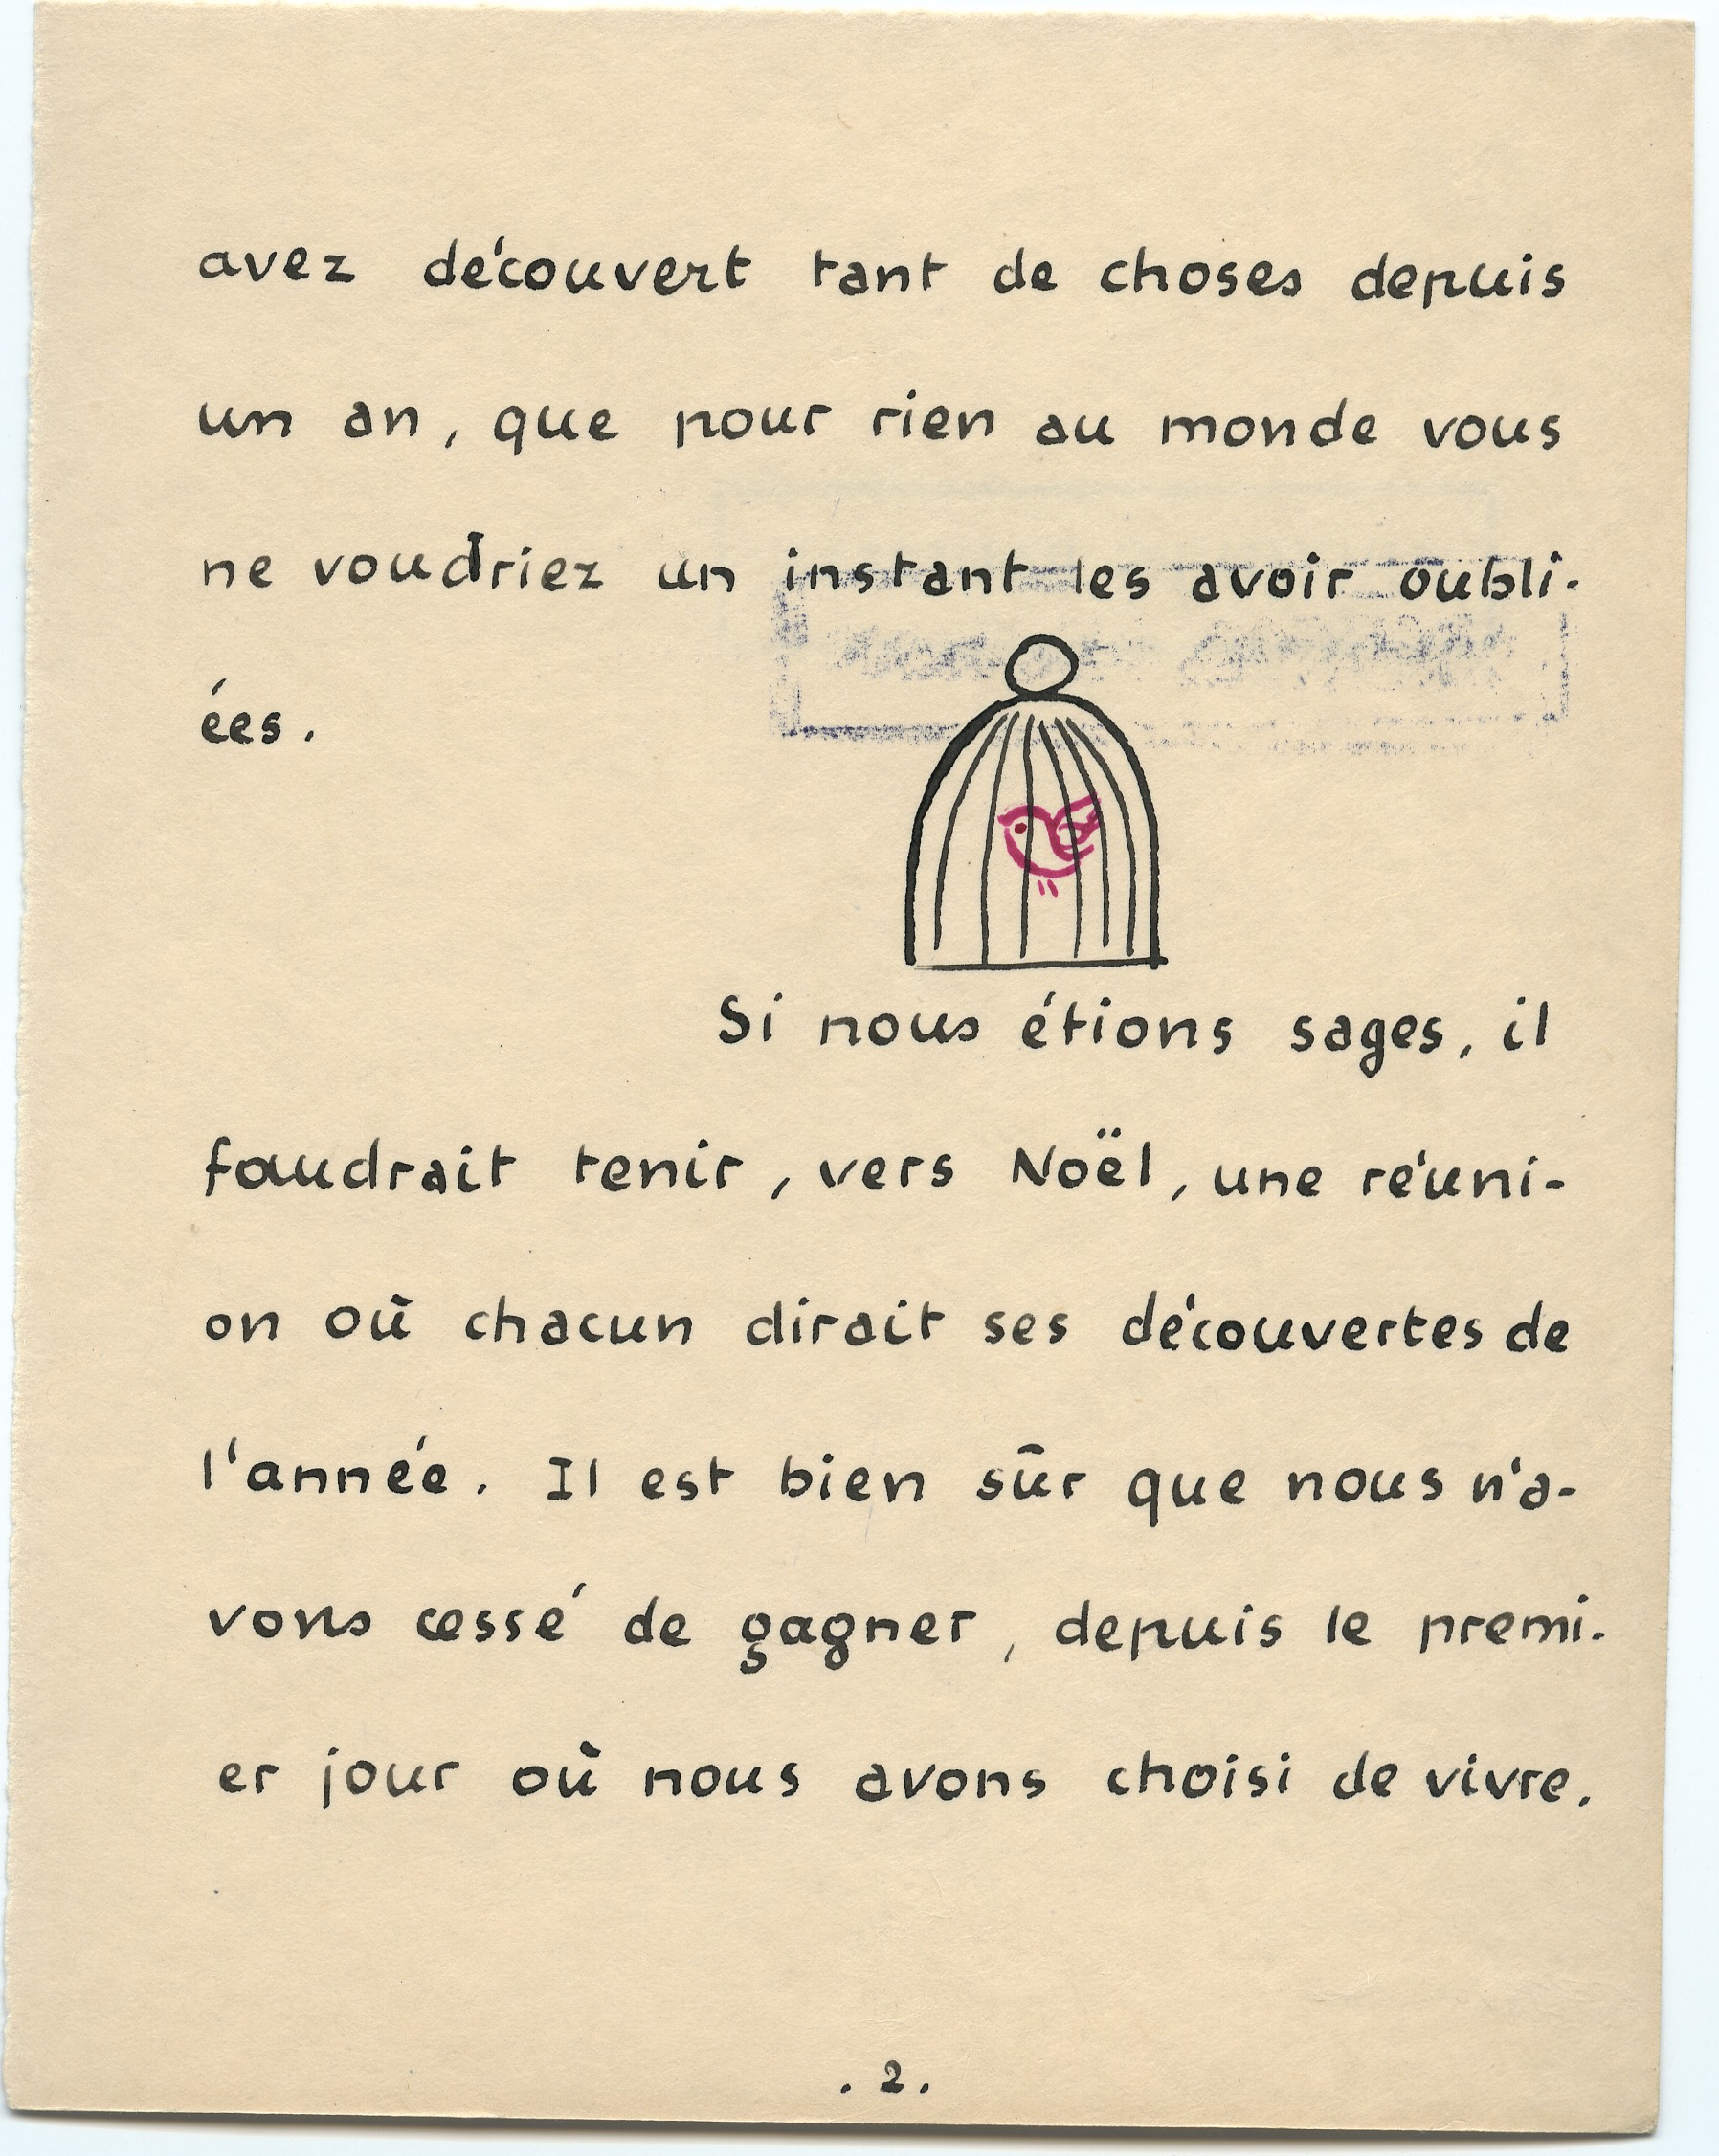 avez découvert tant de choses depuis
un an, que pour rien au monde vous
ne voudriez un instant les avoir oubli-
ées.
Si nous étions sages, il
faudrait tenir, vers Noël, une réuni-
on où chacun dirait ses découvertes de
l'année. Il est bien sûr que nous n'a-
vons cessé de gagner, depuis le premi-
er jour où nous avons choisi de vivre.
. 2 .